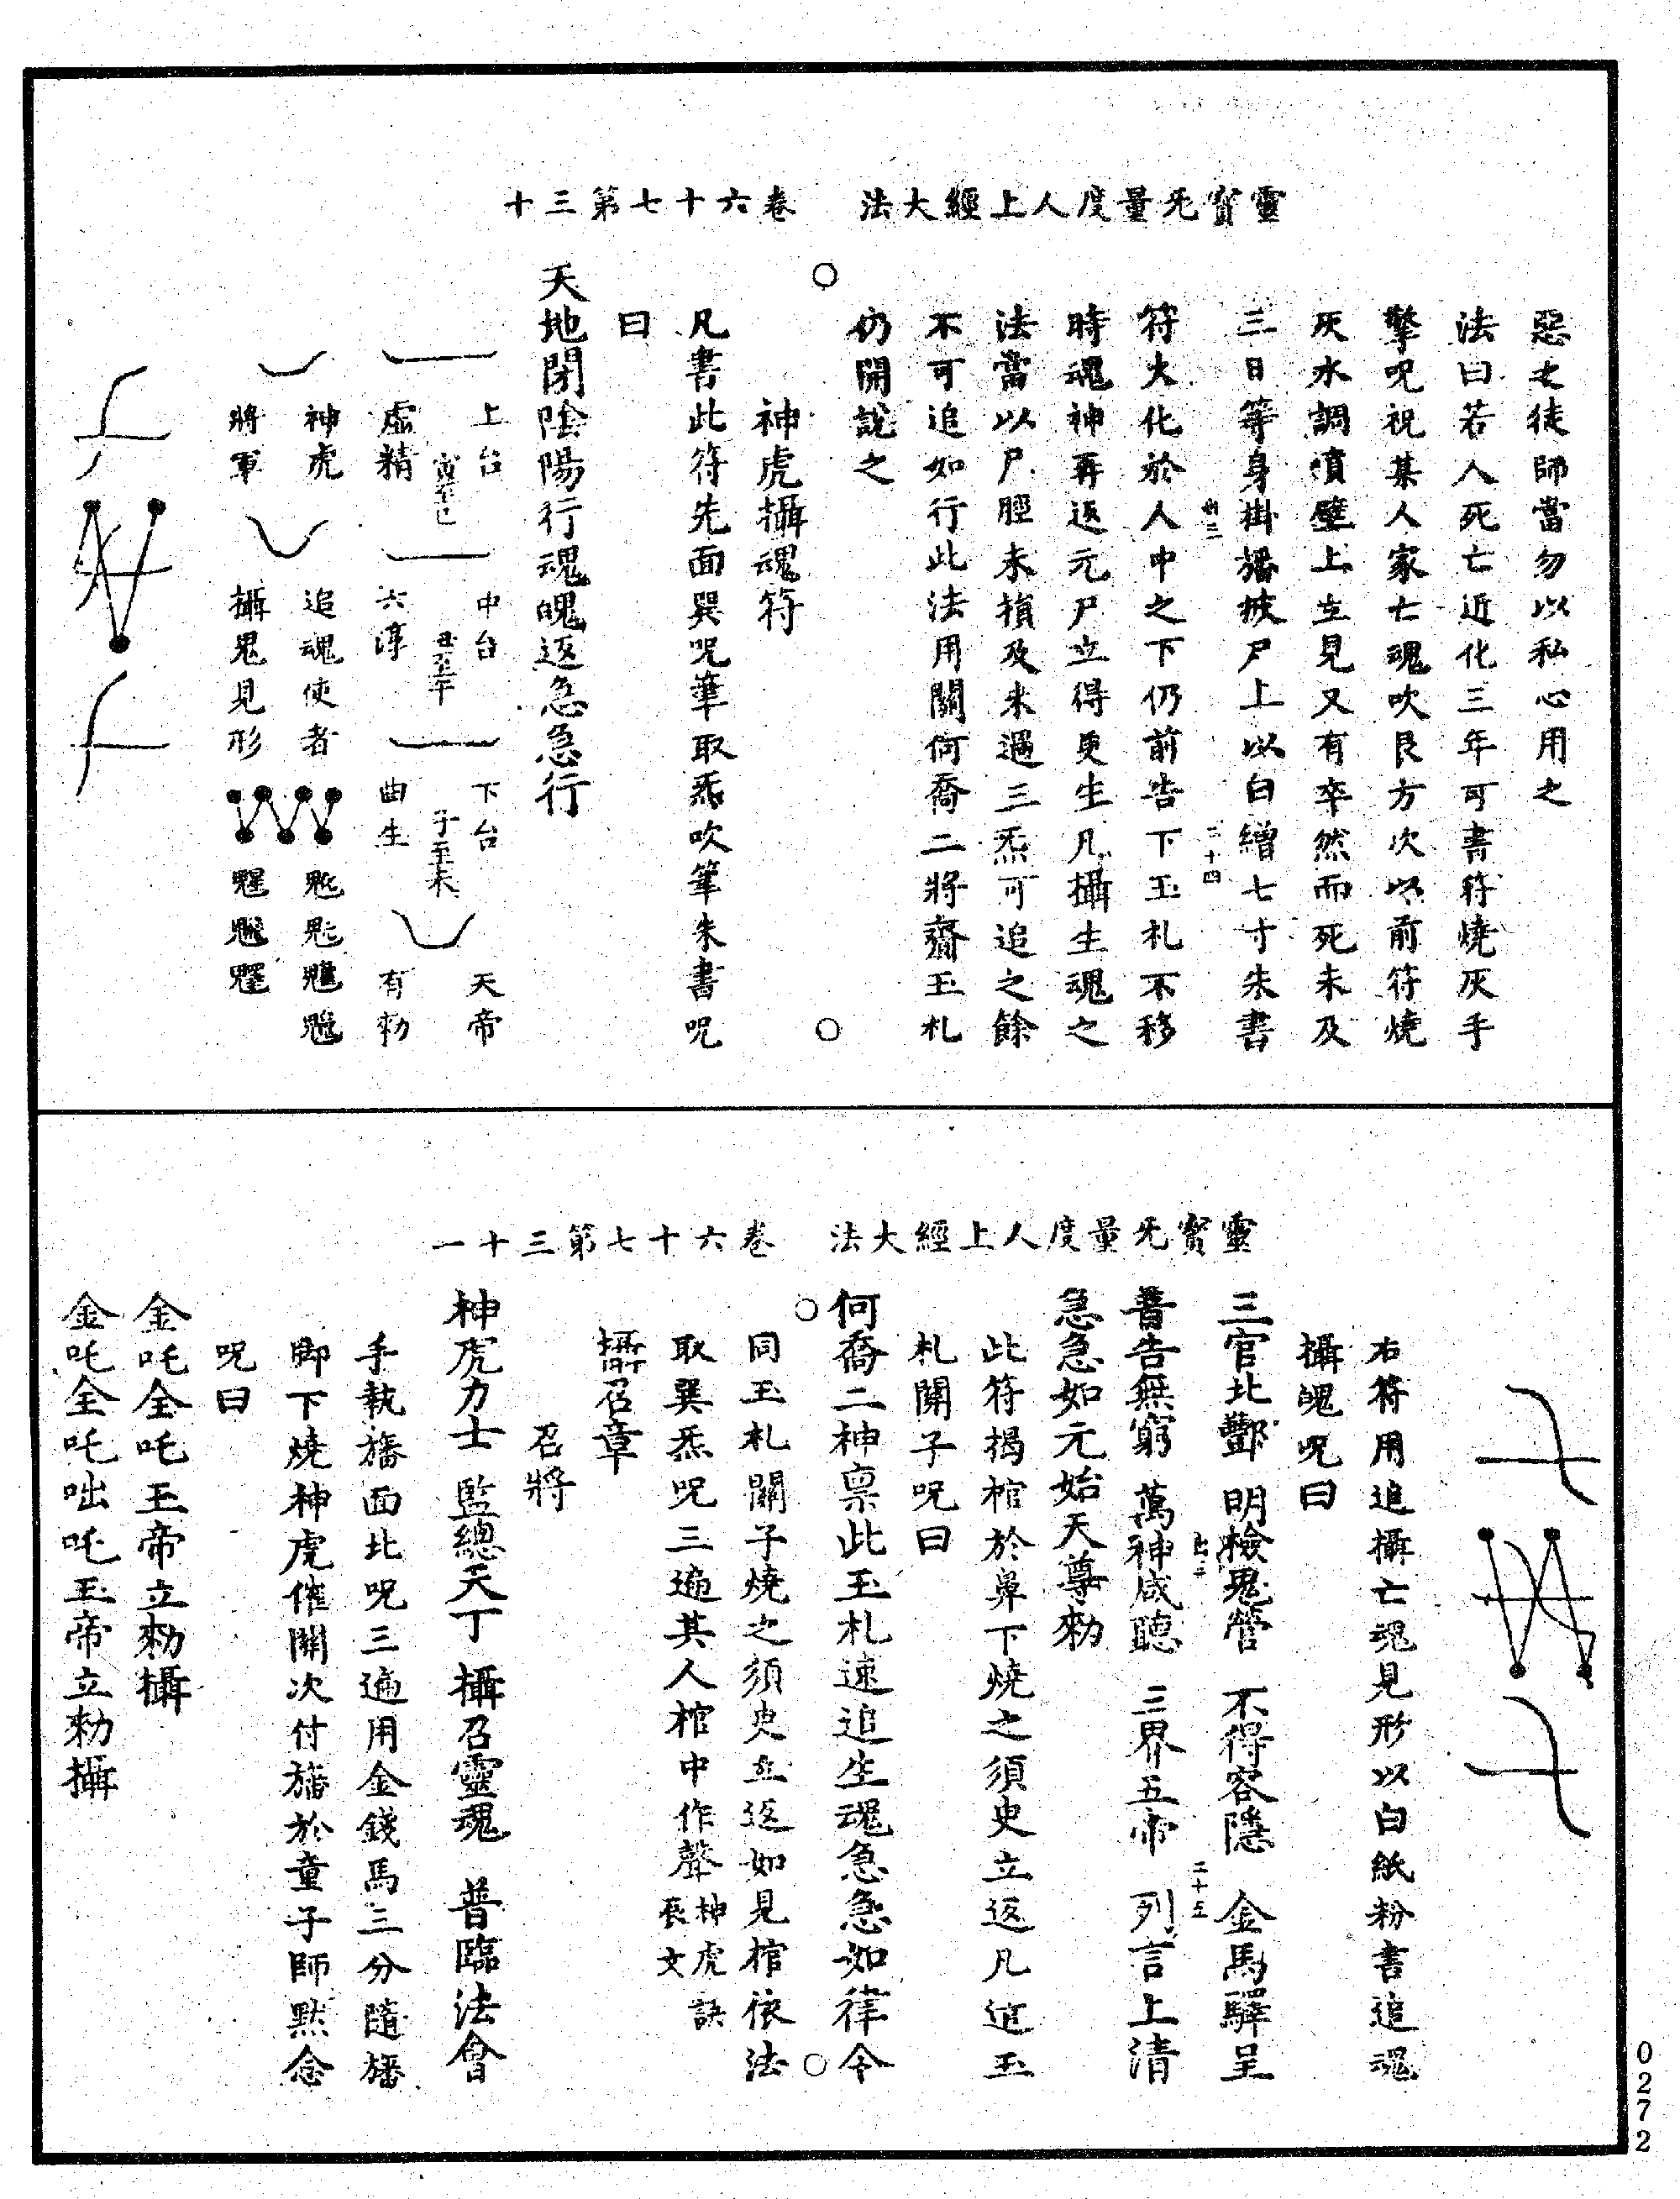 靈寳无量度人上經大法　卷六十七第三十
惡之徒師當勿以私心用之
法曰若人死亡近化三年可書符燒灰手
擎呪祝某人家亡魂吹艮方次以前符燒
灰水調噴壁上立見又有卒然而死未及
三日等身掛旛披尸上以白繒七寸朱書
二十四
符火化於人中之下仍前告下玉札不移
時魂神再返元尸立得更生凡攝生魂之
法當以尸脛未損及未過三炁可追之餘
不可追如行此法用關何喬二將齎玉札
仍開說之
神虎攝魂符
凡書此符先面巽呪筆取炁吹筆朱書呪
曰
天地閉陰陽行魂魄返急急行
上台 虛精 寅至巳
中台 六淳 丑至午
下台 曲生 子至未
天帝 有勑
神虎 將軍
追魂使者 攝鬼見形
靈寳无量度人上經大法　卷六十七第三十一
右符用追攝亡魂見形以白紙粉書追魂
攝魄呪曰
三官北酆　明檢鬼營　不得容隱　金馬驛呈
二十五
普告無窮　萬神咸聽　三界五帝　列言上清
急急如元始天尊勑
此符揭棺於鼻下燒之須臾立返凡追玉
札關子呪曰
何喬二神禀此玉札速追生魂急急如律令
同玉札關子燒之須臾立返如見棺依法
取巽炁呪三遍其人棺中作聲神虎訣表文
攝召章
召將
神虎力士　監總天丁　攝召靈魂　普臨法會
手執旛面北呪三遍用金錢馬三分隨旛
脚下燒神虎催關次付旛於童子師默念
呪曰
金吒全吒玉帝立勑攝
金吒全吒咄吒玉帝立勑攝
0272